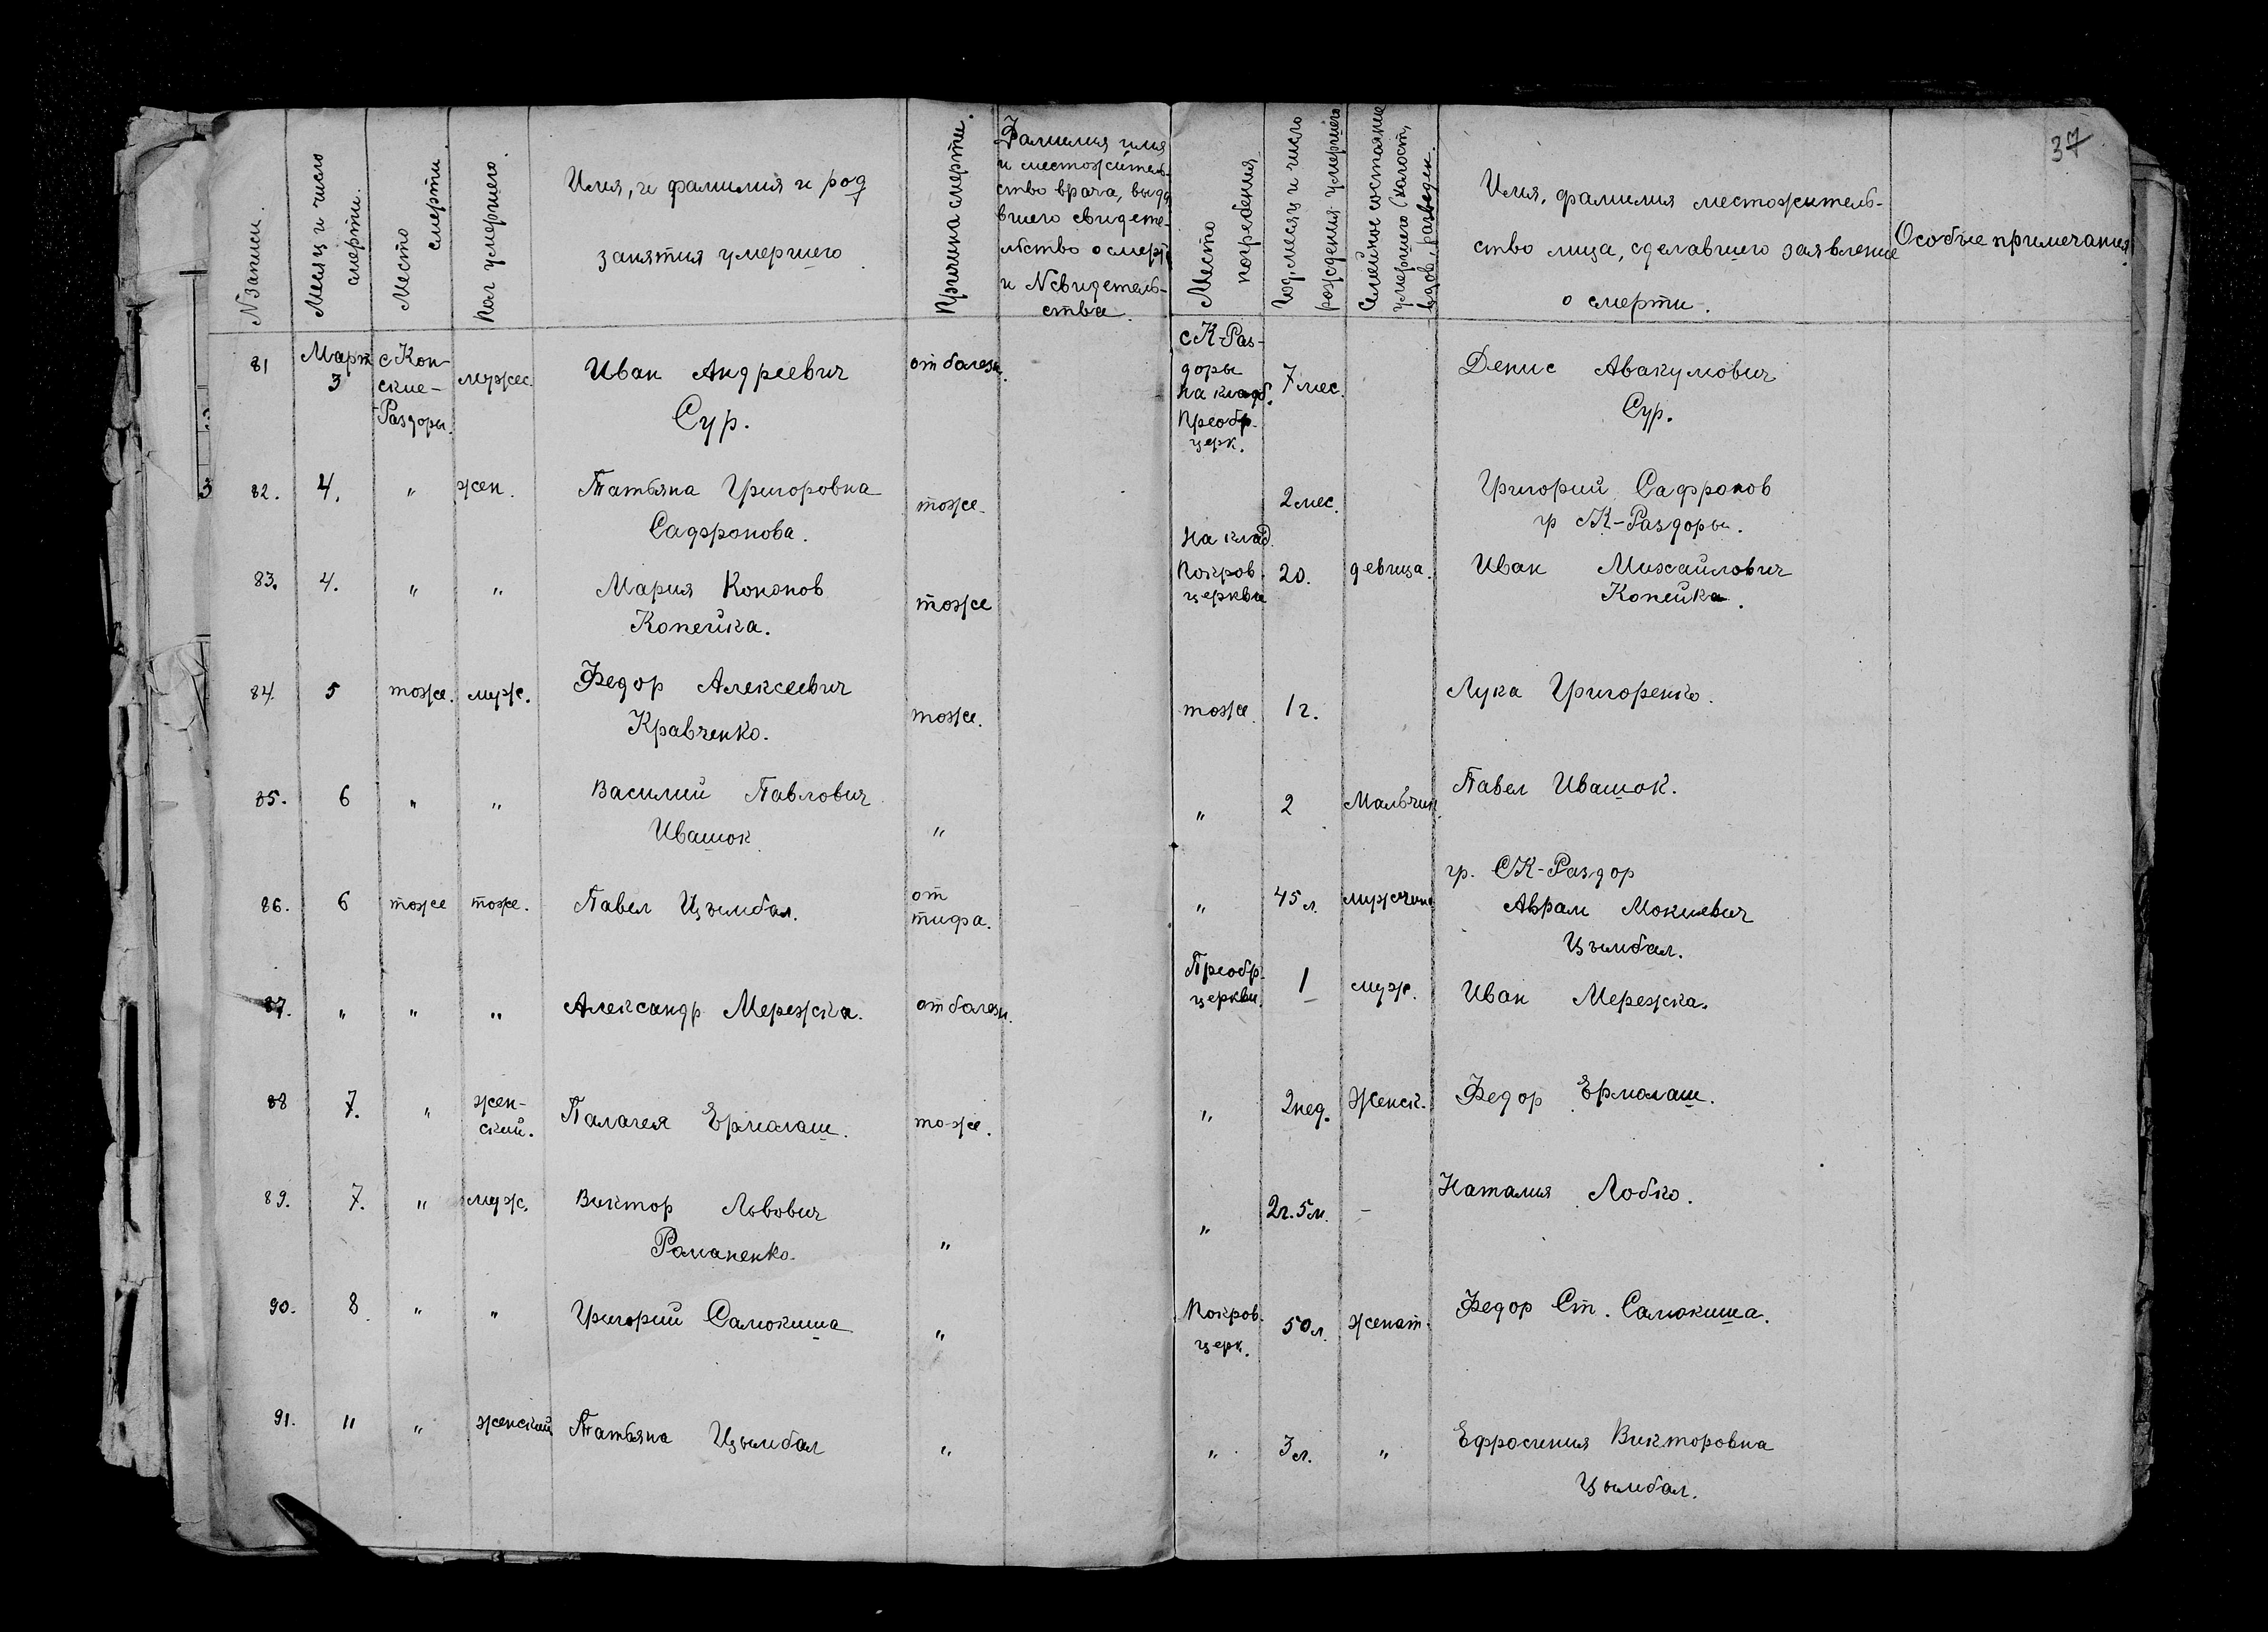 37
N Записи.
Месяц и число
смерти.
Место
смерти.
Пол умершего.
Имя, и фамилия и род
занятия умершего.
Причина смерти.
Фамилия имя
и местожитель-
ство врача, выда
вшего свидете-
льство о смерт
и N свидетель-
ства.
Место
погребения
Год, месяц и число
рождения умершего
Семейное состояние
умершего (холост,
вдов, разведен.
Имя, фамилия местожитель-
ство лица, сделавшего заявление
о смерти.
Особые примечания.
81 Март 3 с Кон-
ские-
Раздоры. мужес. Иван Андреевич
Сур. от болезн. с К-Раз-
доры
на кладб.
Преобр.
церк. 7 мес. Денис Авакумович
Сур.
82. 4. " жен. Татьяна Григоровна
Сафронова. тоже. 2 мес. Григорий Сафронов
гр с К-Раздоры.
83. 4. " " Мария Кононов
Копейка. тоже На клад.
Покров.
церкви 20. девица. Иван Михайлович
Копейка.
84. 5 тоже. муж. Федор Алексеевич
Кравченко. тоже. тоже. 1 г. Лука Григоренко.
85. 6 " " Василий Павлович
Ивашок " " 2 Мальчик Павел Ивашок.
86. 6 тоже тоже. Павел Цымбал. от
тифа. " 45 л. мужчина гр. С К-Раздор
Аврам Мокиевич
Цымбал.
87. " " " Александр Мережка. от болезн. Преобр.
церкви. 1 муж. Иван Мережка.
88 7. " жен-
ский. Палагея Ермолаш. тоже. " 2 нед. Женск. Федор Ермолаш.
89. 7. " муж. Виктор Львович
Романенко. " " 2 г. 5 м. - Наталия Лобко.
90. 8. " " Григорий Самокиша " Покров.
церк. 50 л. женат. Федор Ст. Самокиша.
91. 11 " женский Татьяна Цымбал " " 3 л. " Ефросиния Викторовна
Цымбал.